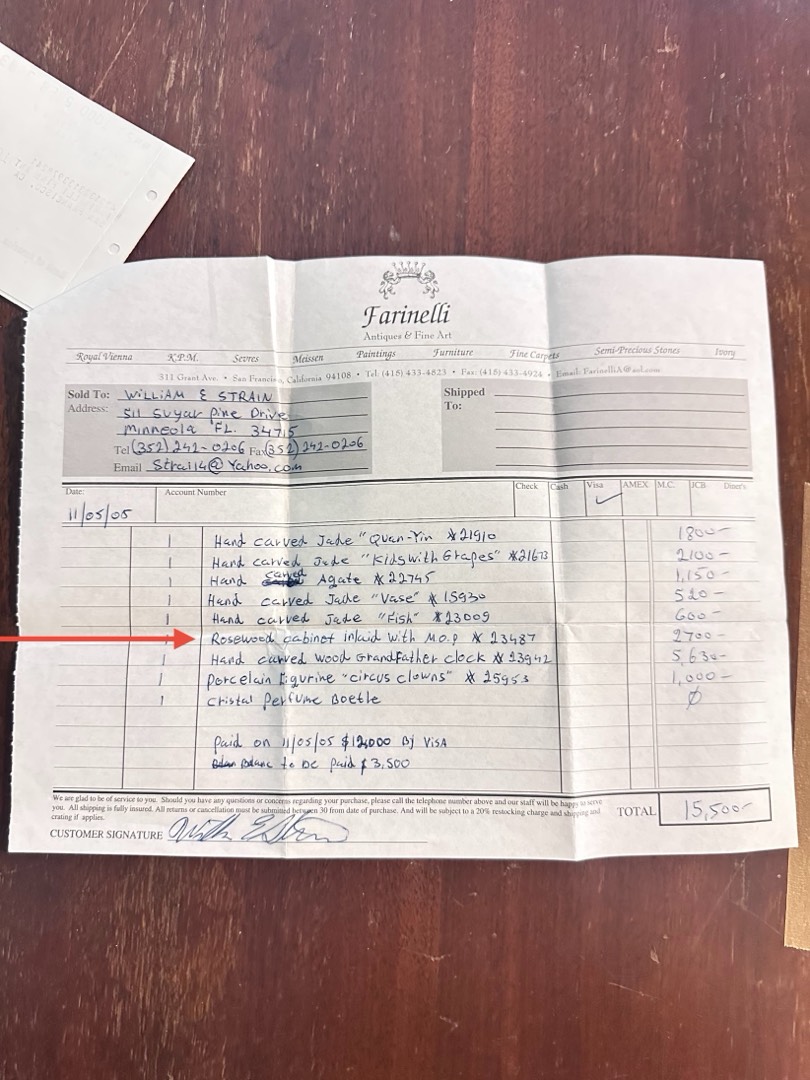 Farinelli
Antiques & Fine Art
Royal Vienna K.P.M. Sevres Meissen Paintings Furniture Fine Carpets Semi-Precious Stones Ivory
311 Grant Ave. • San Francisco, California 94108 • Tel: (415) 433-4823 • Fax: (415) 433-4924 • Email: FarinelliA@aol.com
Sold To: WILLIAM E STRAIN
Address: 511 Sugar Pine Drive
Minneola FL. 34715
Tel (352) 242-0206 Fax (352) 242-0206
Email Strail4@Yahoo.com
Shipped
To:
Date: Account Number Check Cash Visa AMEX M.C. JCB Diner's
11/05/05 ✓
1 Hand carved Jade "Quan-Yin * 21910 1800-
1 Hand carved Jade "Kids with Grapes" * 21673 2100-
1 Hand carved Agate * 22745 1,150-
1 Hand carved Jade "Vase" * 15930 520-
1 Hand carved Jade "Fish" * 23009 600-
1 Rosewood cabinet inlaid with M.O.P * 23487 2700-
1 Hand carved wood GrandFather clock * 23942 5,630-
1 Porcelain Figurine "circus clowns" * 25953 1,000-
1 Cristal Perfume Boetle Ø
Paid on 11/05/05 $12,000 By VISA
Blanc to be paid $ 3,500
We are glad to be of service to you. Should you have any questions or concerns regarding your purchase, please call the telephone number above and our staff will be happy to serve
you. All shipping is fully insured. All returns or cancellation must be submitted between 30 from date of purchase. And will be subject to a 20% restocking charge and shipping and
crating if applies.
TOTAL 15,500-
CUSTOMER SIGNATURE